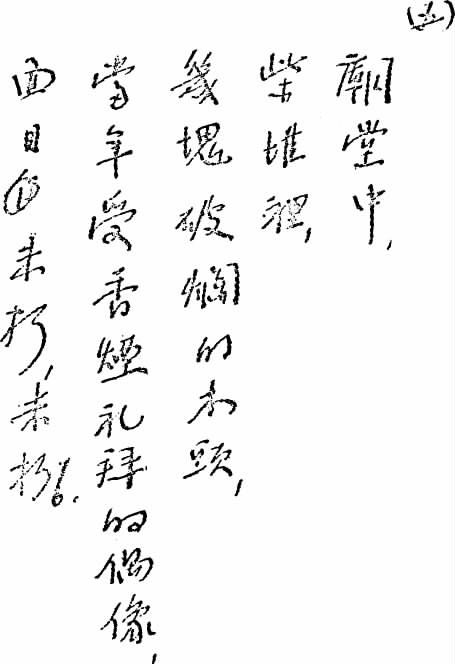 (四)
廟堂中,
柴堆裡,
幾塊破爛的木頭,
當年受香煙礼拜的偶像,
面目仍未朽,未朽!